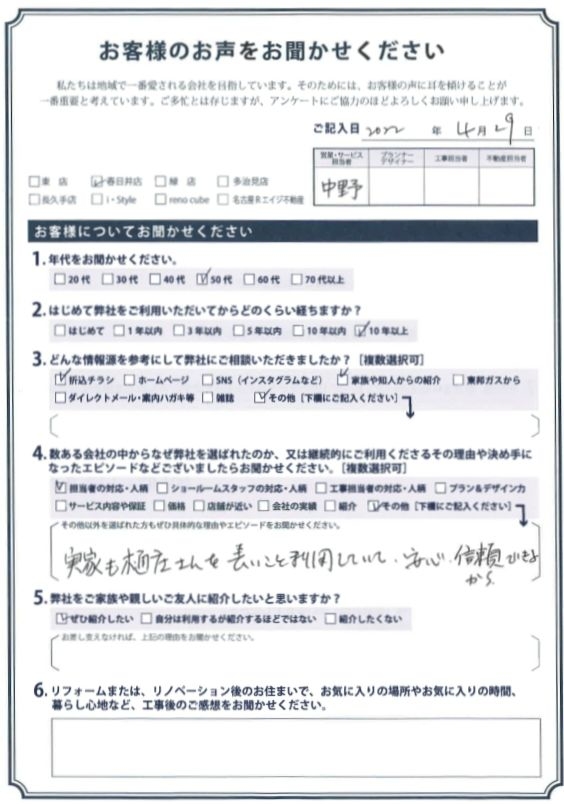 お客様のお声をお聞かせください
私たちは地域で一番愛される会社を目指しています。そのためには、お客様の声に耳を傾けることが
一番重要と考えています。ご多忙とは存じますが、アンケートにご協力のほどよろしくお願い申し上げます。
ご記入日 2022 年 4月29日
営業・サービス担当者 プランナーデザイナー 工事担当者 不動産担当者
中野
□東 店 ☑春日井店 □緑 店 □多治見店
□長久手店 □i・Style □reno cube □名古屋Rエイジ不動産
お客様についてお聞かせください
1.年代をお聞かせください。
□20代 □30代 □40代 ☑50代 □60代 □70代以上
2.はじめて弊社をご利用いただいてからどのくらい経ちますか?
□はじめて □1年以内 □3年以内 □5年以内 □10年以内 ☑10年以上
3.どんな情報源を参考にして弊社にご相談いただきましたか?[複数選択可]
☑折込チラシ □ホームページ □SNS(インスタグラムなど) ☑家族や知人からの紹介 □東邦ガスから
□ダイレクトメール・案内ハガキ等 □雑誌 ☑その他[下欄にご記入ください]
4.数ある会社の中からなぜ弊社を選ばれたのか、又は継続的にご利用くださるその理由や決め手に
なったエピソードなどございましたらお聞かせください。[複数選択可]
☑担当者の対応・人柄 □ショールームスタッフの対応・人柄 □工事担当者の対応・人柄 □プラン&デザイン力
□サービス内容や保証 □価格 □店舗が近い □会社の実績 □紹介 ☑その他[下欄にご記入ください]
その他以外を選ばれた方もぜひ具体的な理由やエピソードをお聞かせください。
実家も さんを長いこと利用していて、安心、信頼できる
から
5.弊社をご家族や親しいご友人に紹介したいと思いますか?
☑ぜひ紹介したい □自分は利用するが紹介するほどではない □紹介したくない
お差し支えなければ、上記の理由をお聞かせください。
6.リフォームまたは、リノベーション後のお住まいで、お気に入りの場所やお気に入りの時間、
暮らし心地など、工事後のご感想をお聞かせください。